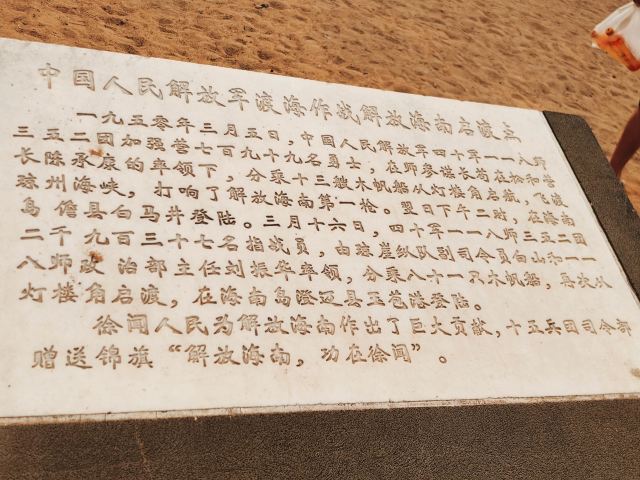 中国人民解放军渡海作战解放海南启渡点
一九五零年三月五日，中国人民解放军四十军一一八师
三五二团加强营七百九十九名勇士，在师参谋长苟在松和营
长陈承康的率领下，分乘十三艘木帆船从灯楼角启航，飞渡
琼州海峡，打响了解放海南第一枪。翌日下午二时，在海南
岛 儋县白马井登陆。三月二十六日，四十军一一八师三五二团
二千九百三十七名指战员，由琼崖纵队副司令员白山和一一
八师政 治部主任刘振华率领，分乘八十一只木帆船，再次从
灯楼角启渡，在海南岛澄迈县玉苞港登陆。
徐闻人民为解放海南作出了巨大贡献，十五兵团司令部
赠送锦旗“解放海南，功在徐闻”。